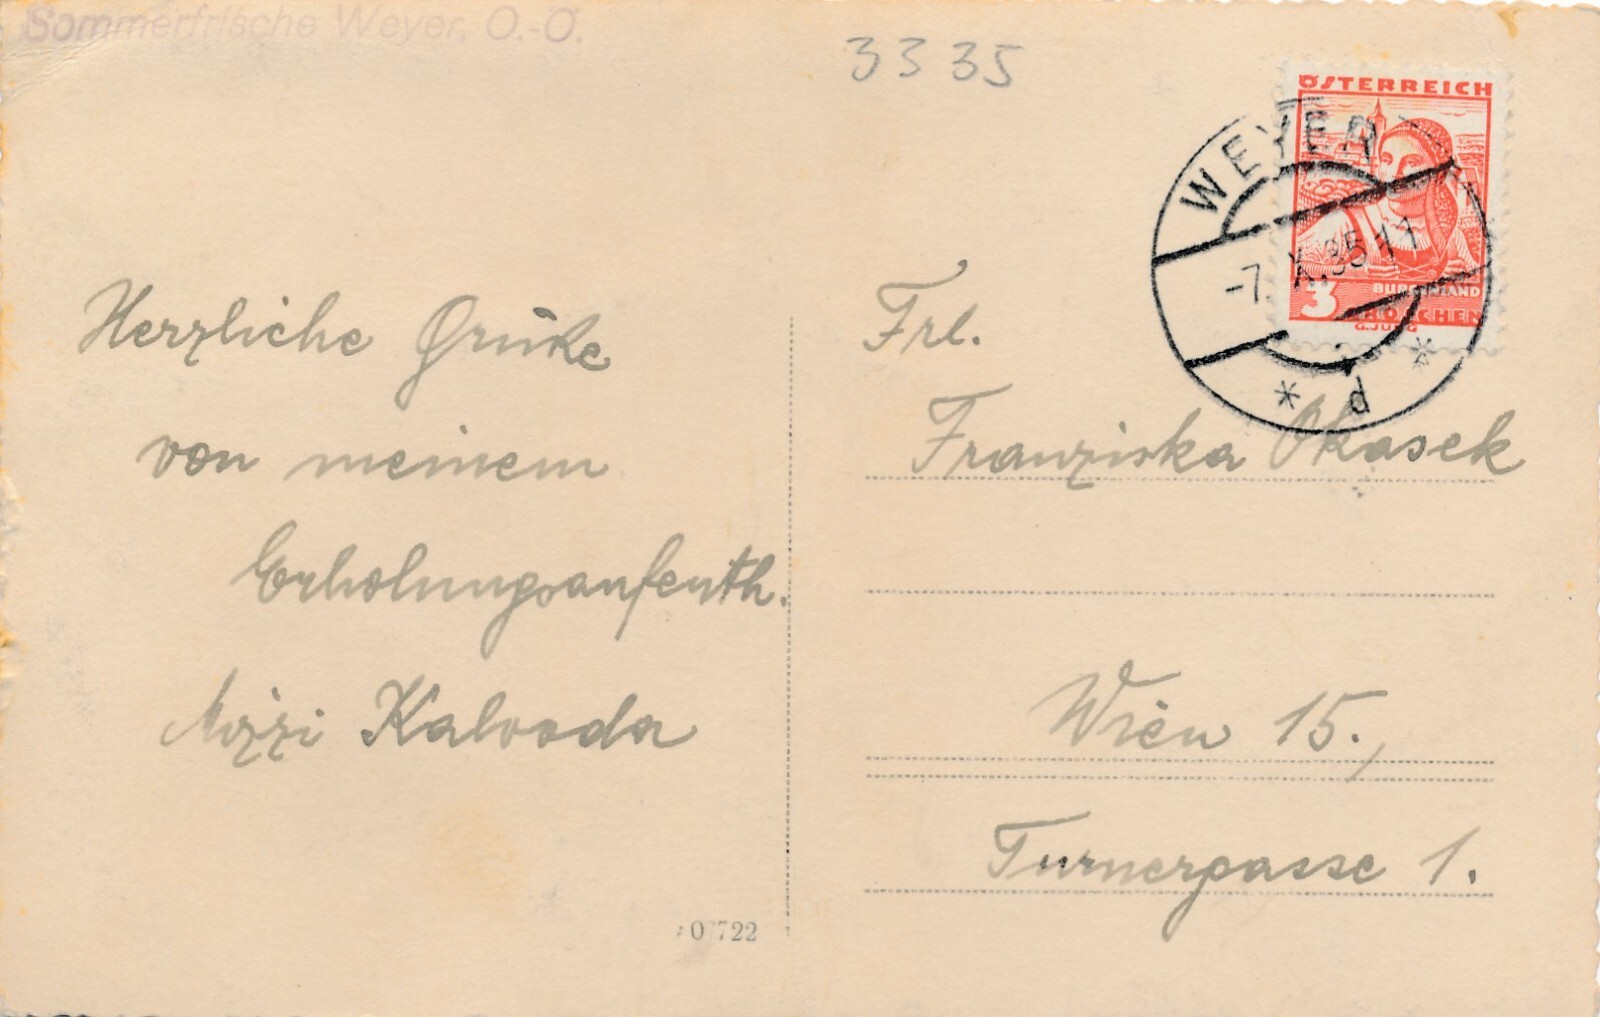 Sommerfrische Weyer, O.-Ö.
3335
ÖSTERREICH
WEYER
-7.X.35 11
3
BURGENLAND
GROSCHEN
G.JUNG
* d *
Herzliche Grüße
von meinem
Erholungsaufenth.
Mizzi Kalvoda
Frl.
Franziska Okasek
Wien 15.,
Turnergasse 1.
722